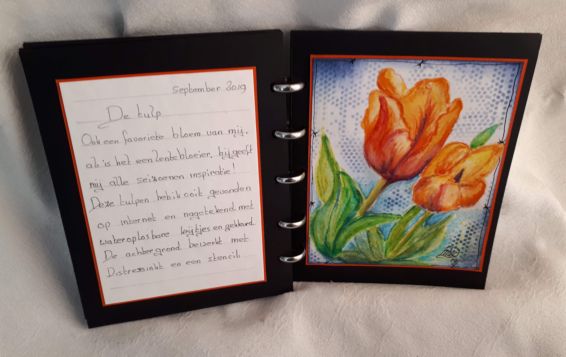 September 2019
De tulp
Ook een favoriete bloem van mij,
al is het een lentebloeier, hij geeft
mij alle seizoenen inspiratie!
Deze tulpen heb ik ooit gevonden
op internet en nagetekend met
wateroplosbare krijtjes en gekleurd.
De achtergrond bewerkt met
Distressinkt en een stencil.